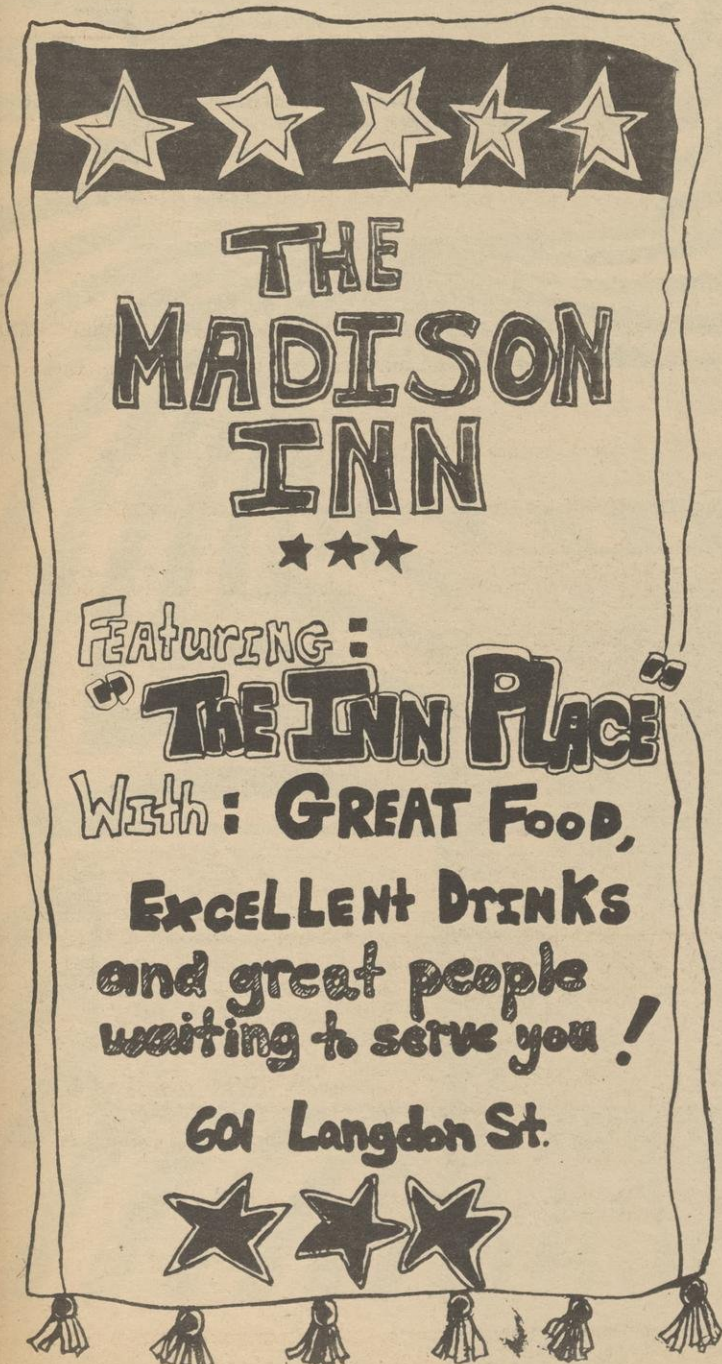 THE
MADISON
INN
FEAturING:
"THE INN PLACE"
WIth: GREAT FOOD,
EXCELLENt DrINKS
and great people
waiting to serve you!
601 Langdon St.